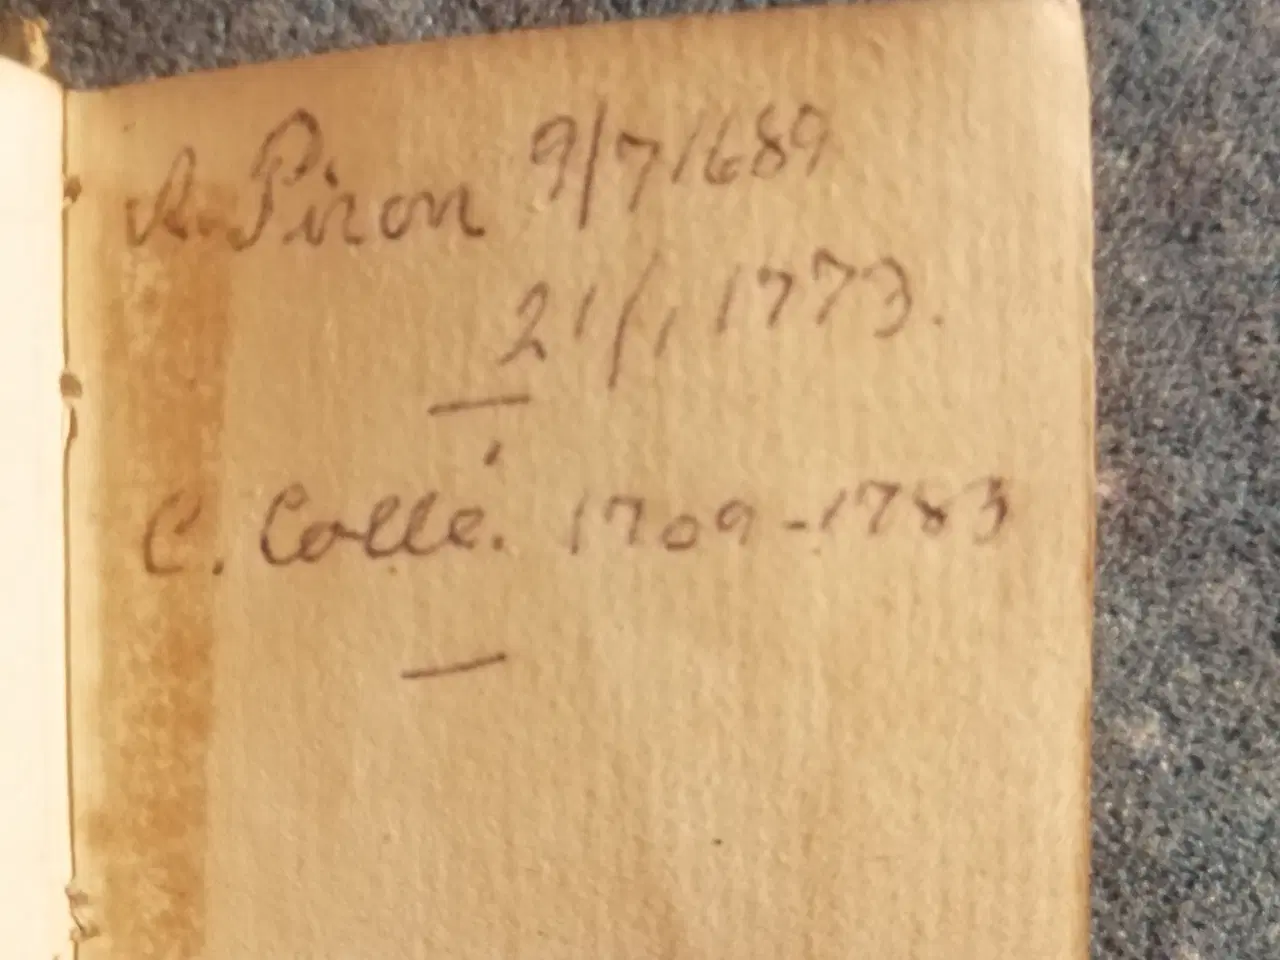 A. Piron 9/7/1689
21/1 1773.
C. Collé. 1709-1783